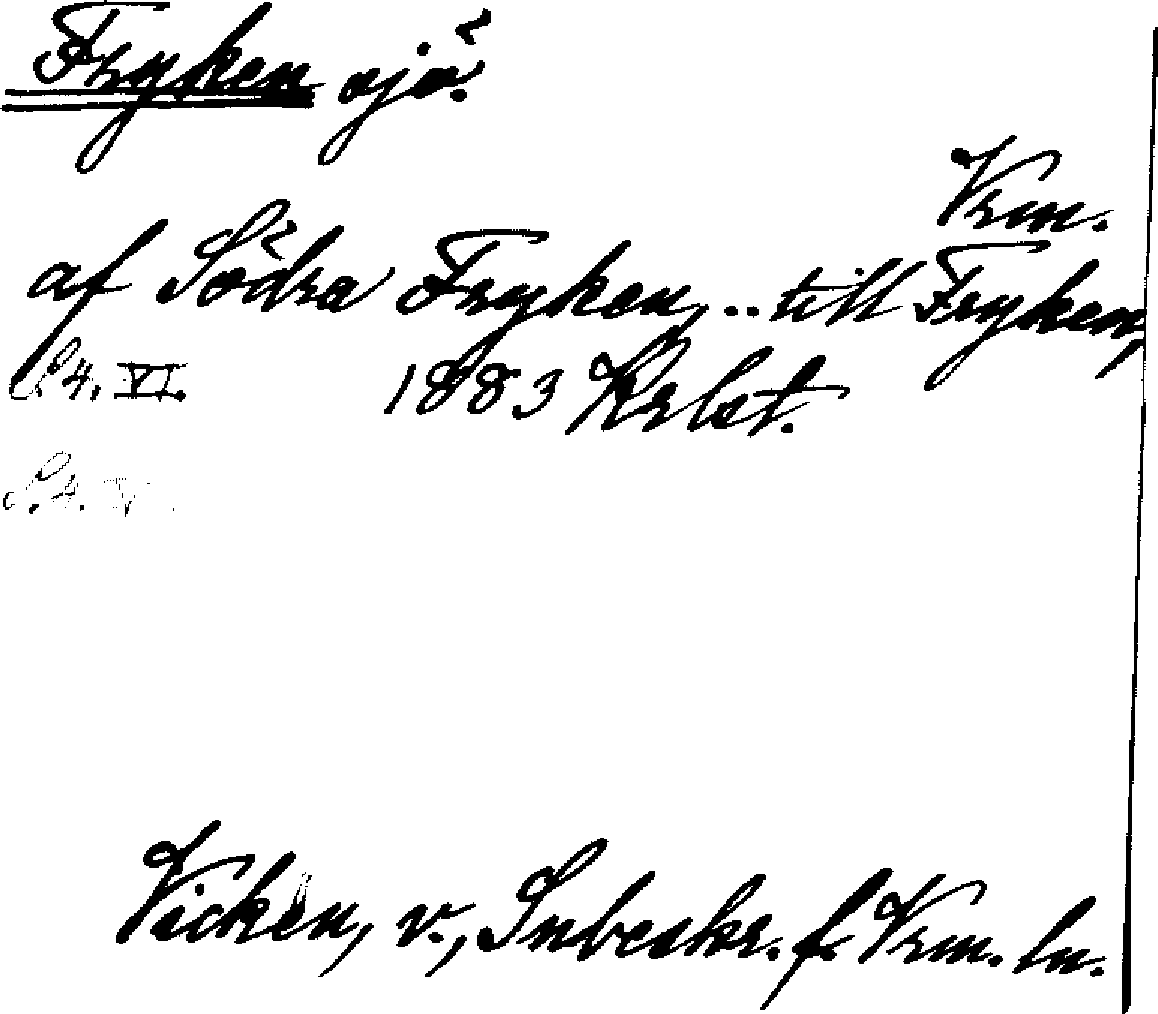 Fryken sjö.
Vrm.
af Södra Fryken, .. till Fryken,
S4. VI. 1883 Krbst.
S.4. V.
Vicken, v., Snbeskr. f. Vrm. ln.